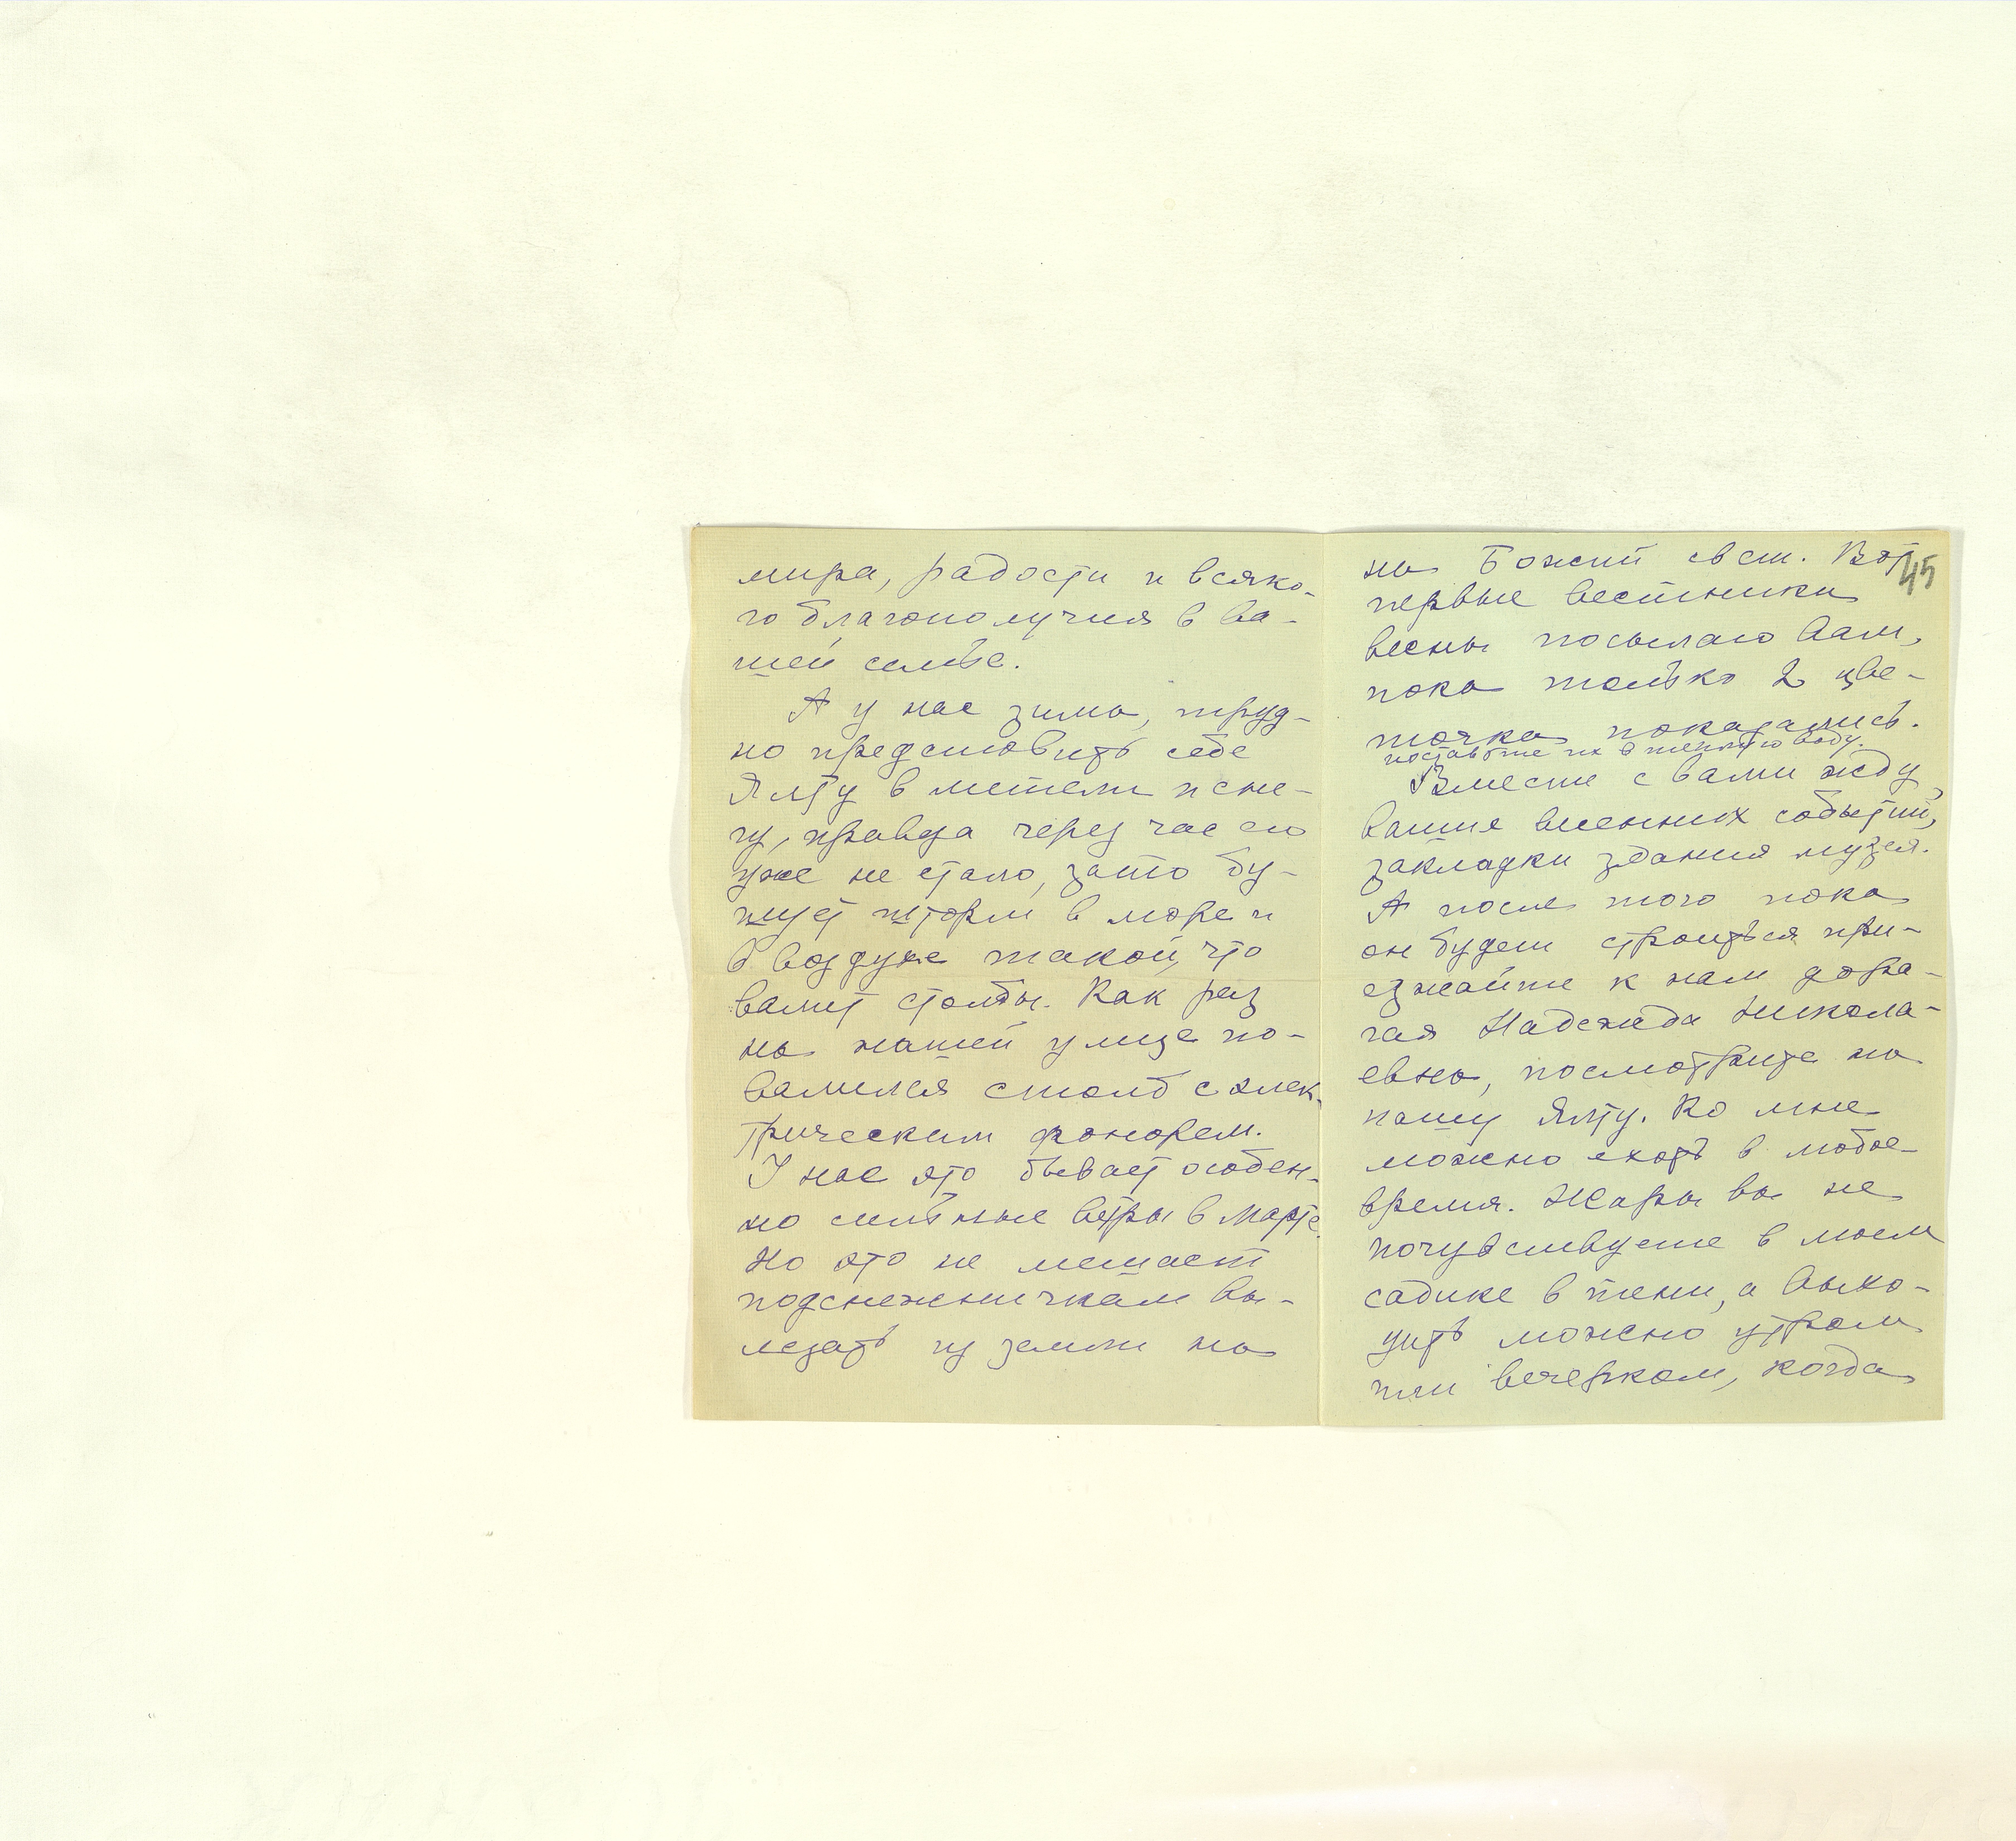 мира, радости и всяко-
го благополучия в ва-
шей семье.
А у нас зима, труд-
но представить себе
Ялту в метели и сне-
гу, правда через час его
уже не стало, зато бу-
шует шторм в море и
в воздухе такой, что
валит столбы. Как раз
на нашей улице по-
валился столб с элек-
трическим фонарем.
У нас это бывает особен-
но сильные ветры в марте.
Но это не мешает
подснежничкам вы-
лезать из земли на
на Божий свет. Вот
45
первые вестники
весны посылаю Вам,
пока только 2 цве-
точка показались.
поставьте их в теплую воду.
Вместе с Вами жду,
ваших весенних событий,
закладки здания музея.
А после того пока
он будет строиться при-
езжайте к нам дора-
гая Надежда Никола-
евна, посмотрите на
нашу Ялту. Ко мне
можно ехать в любое
время. Жары вы не
почувствуете в моем
садике в тени, а выхо-
дить можно утром
или вечерком, когда